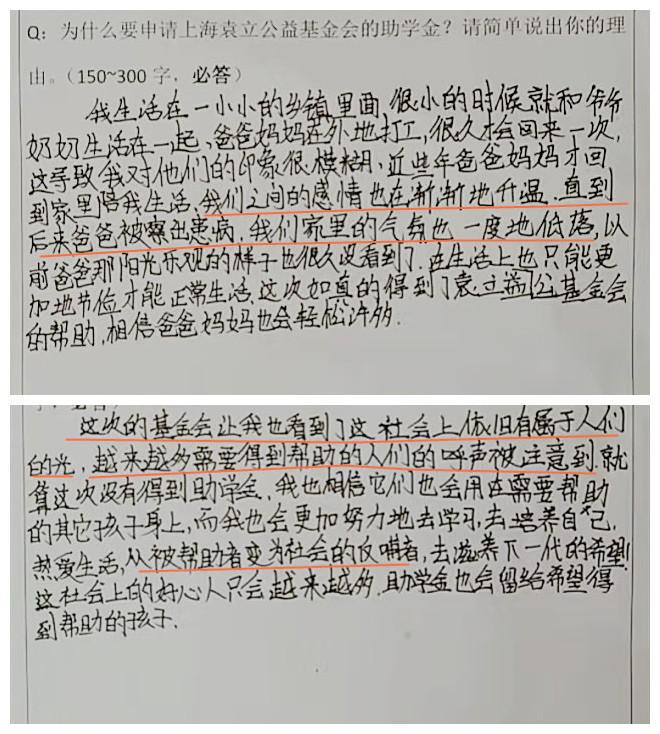 Q：为什么要申请上海袁立公益基金会的助学金？请简单说出你的理
由。（150~300 字，必答）
我生活在一小小的乡镇里面，很小的时候就和爷爷
奶奶生活在一起，爸爸妈妈在外地打工，很久才会回来一次，
这导致我对他们的印象很模糊，近些年爸爸妈妈才回
到家里陪我生活，我们之间的感情也在渐渐地升温，直到
后来爸爸被察出患病，我们家里的气氛也一度地低落，以
前爸爸那阳光乐观的样子也很久没看到了，在生活上也只能更
加地节俭才能正常生活，这次如真的得到了袁立公益基金会
的帮助，相信爸爸妈妈也会轻松许多.
这次的基金会让我也看到了这社会上依旧有属于人们
的光，越来越多需要得到帮助的人们的呼声被注意到，就
算这次没有得到助学金，我也相信它们也会用在需要帮助
的其它孩子身上，而我也会更加努力地去学习，去培养自己，
热爱生活，从被帮助者变为社会的反哺者，去滋养下一代的希望！
这社会上的好心人只会越来越多，助学金也会留给希望得
到帮助的孩子.